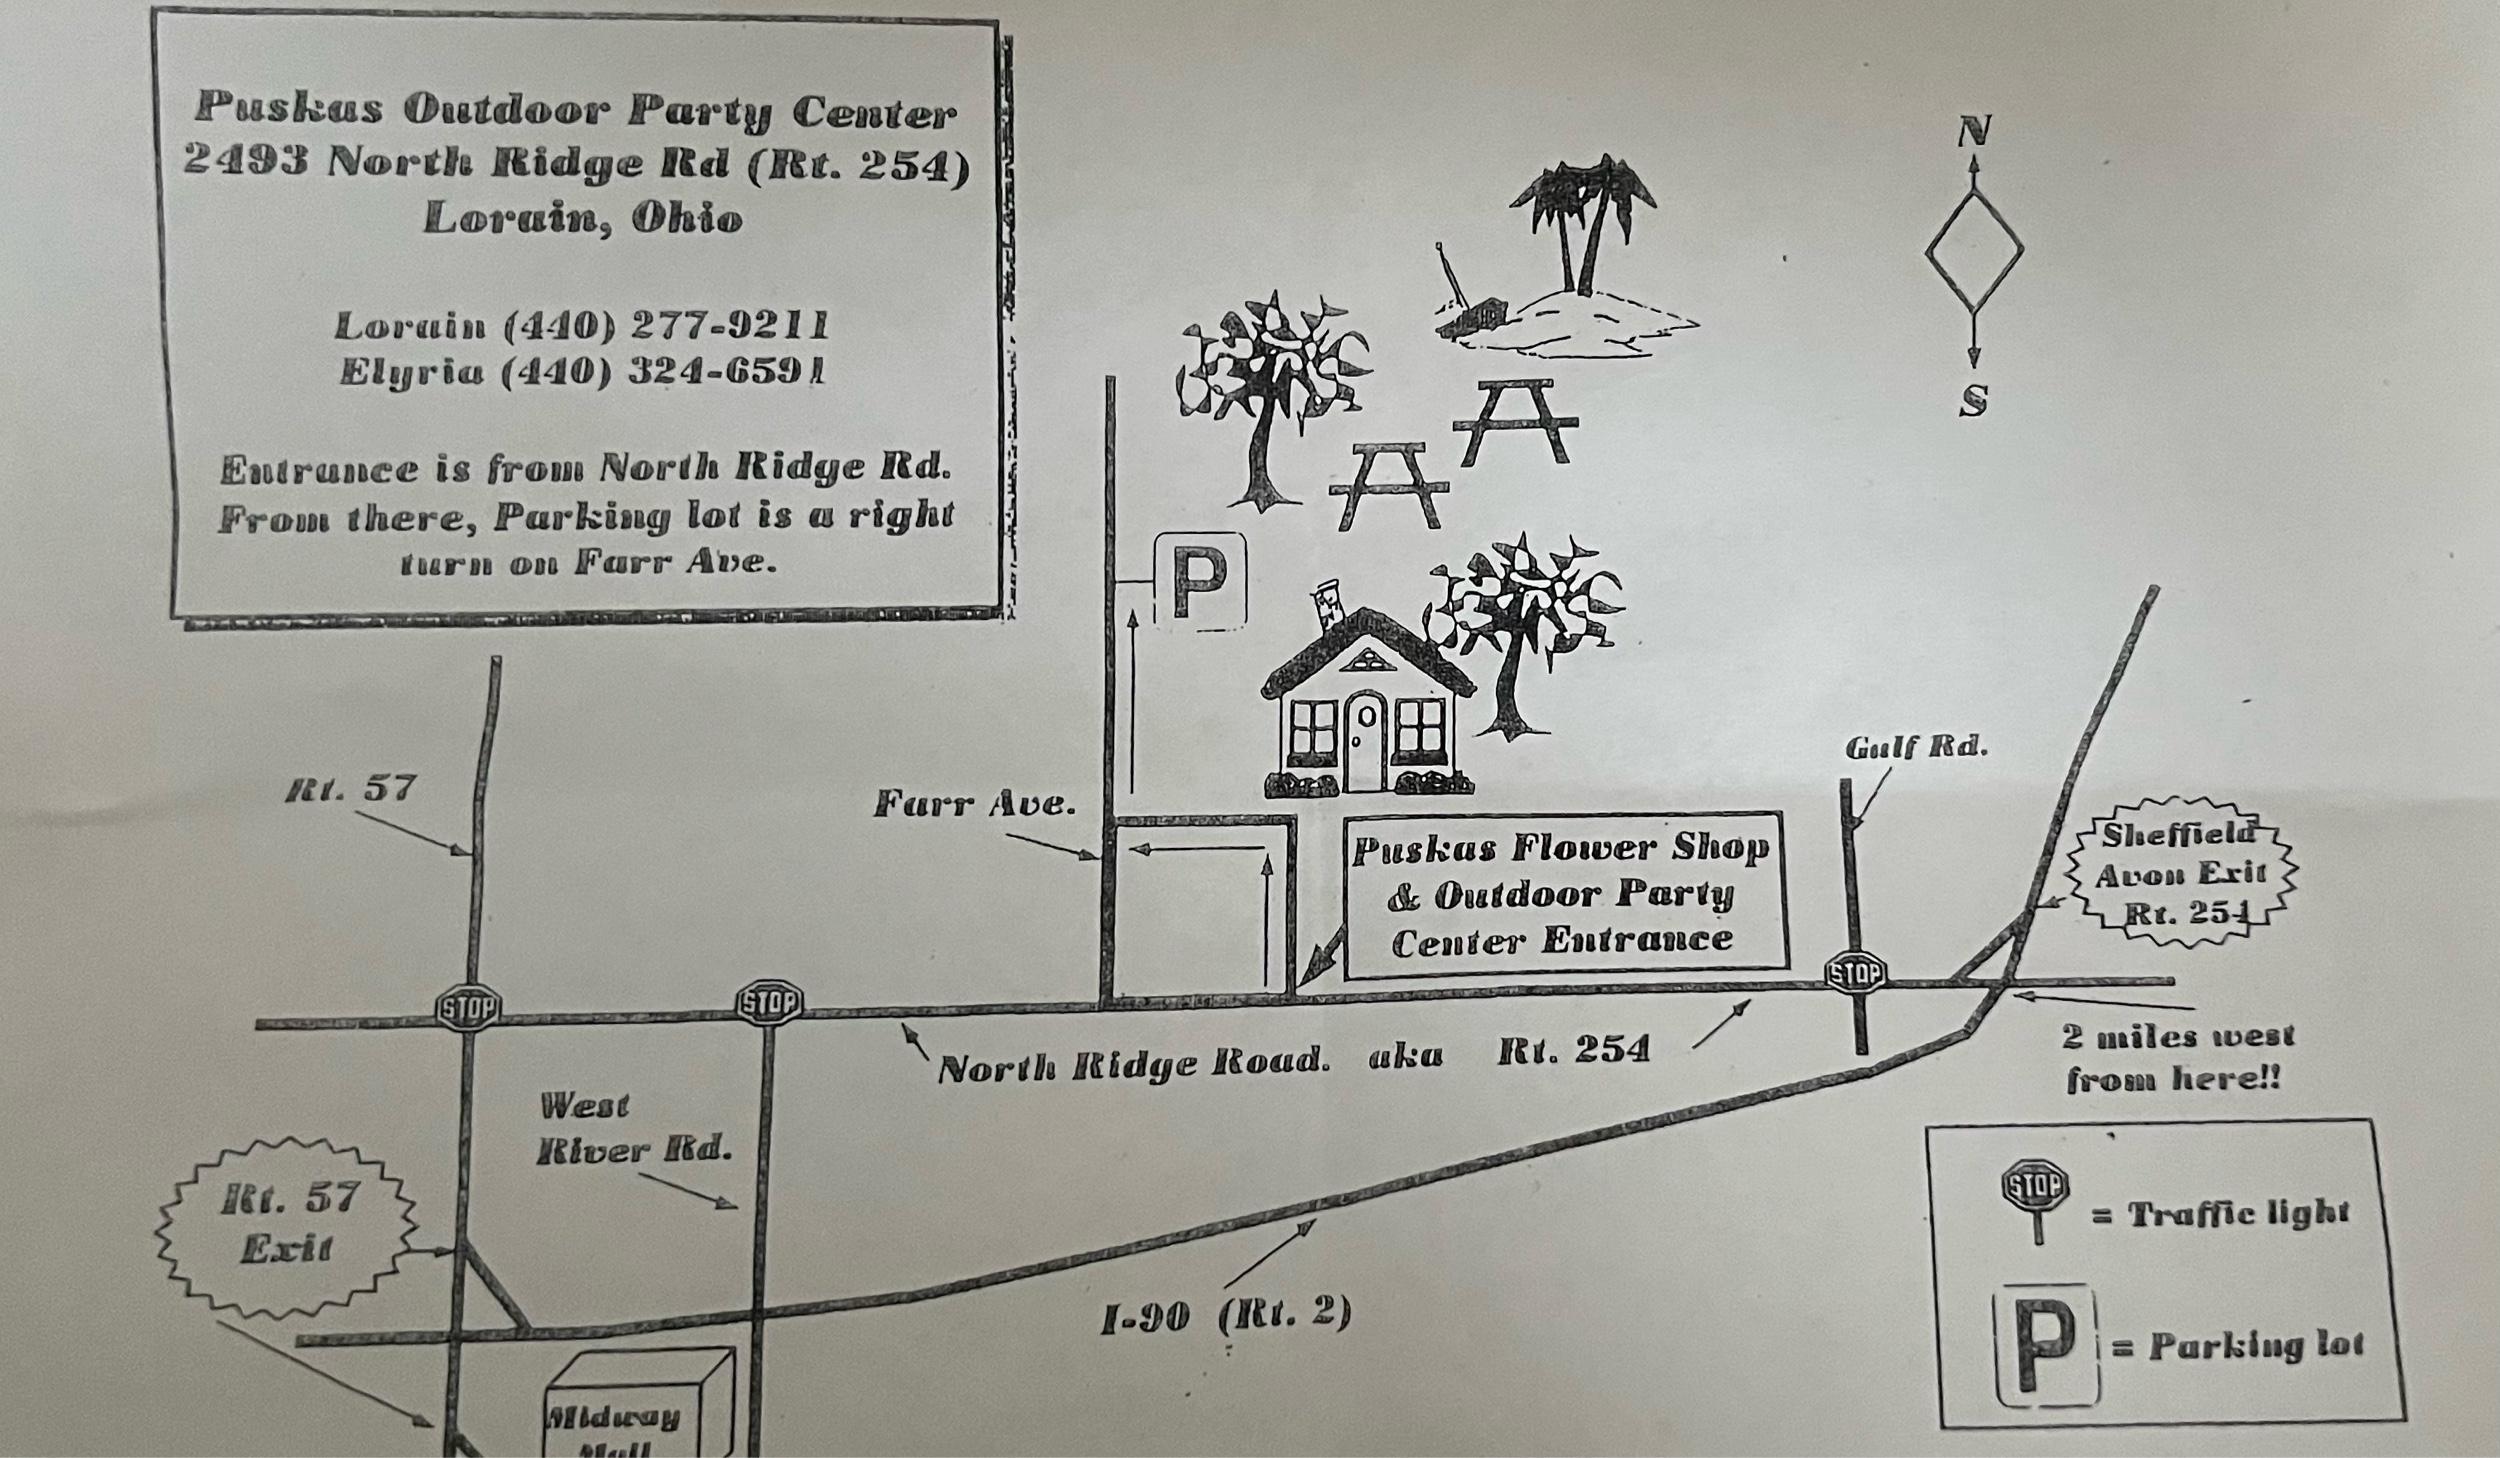 Puskas Outdoor Party Center
2493 North Ridge Rd (Rt. 254)
Lorain, Ohio
Lorain (440) 277-9211
Elyria (440) 324-6591
Entrance is from North Ridge Rd.
From there, Parking lot is a right
turn on Farr Ave.
N
S
P
Rt. 57
Farr Ave.
Gulf Rd.
Puskas Flower Shop
& Outdoor Party
Center Entrance
Sheffield
Avon Exit
Rt. 254
STOP
STOP
STOP
North Ridge Road. aka Rt. 254
2 miles west
from here!!
West
River Rd.
Rt. 57
Exit
I-90 (Rt. 2)
STOP
= Traffic light
P
= Parking lot
Midway
Mall